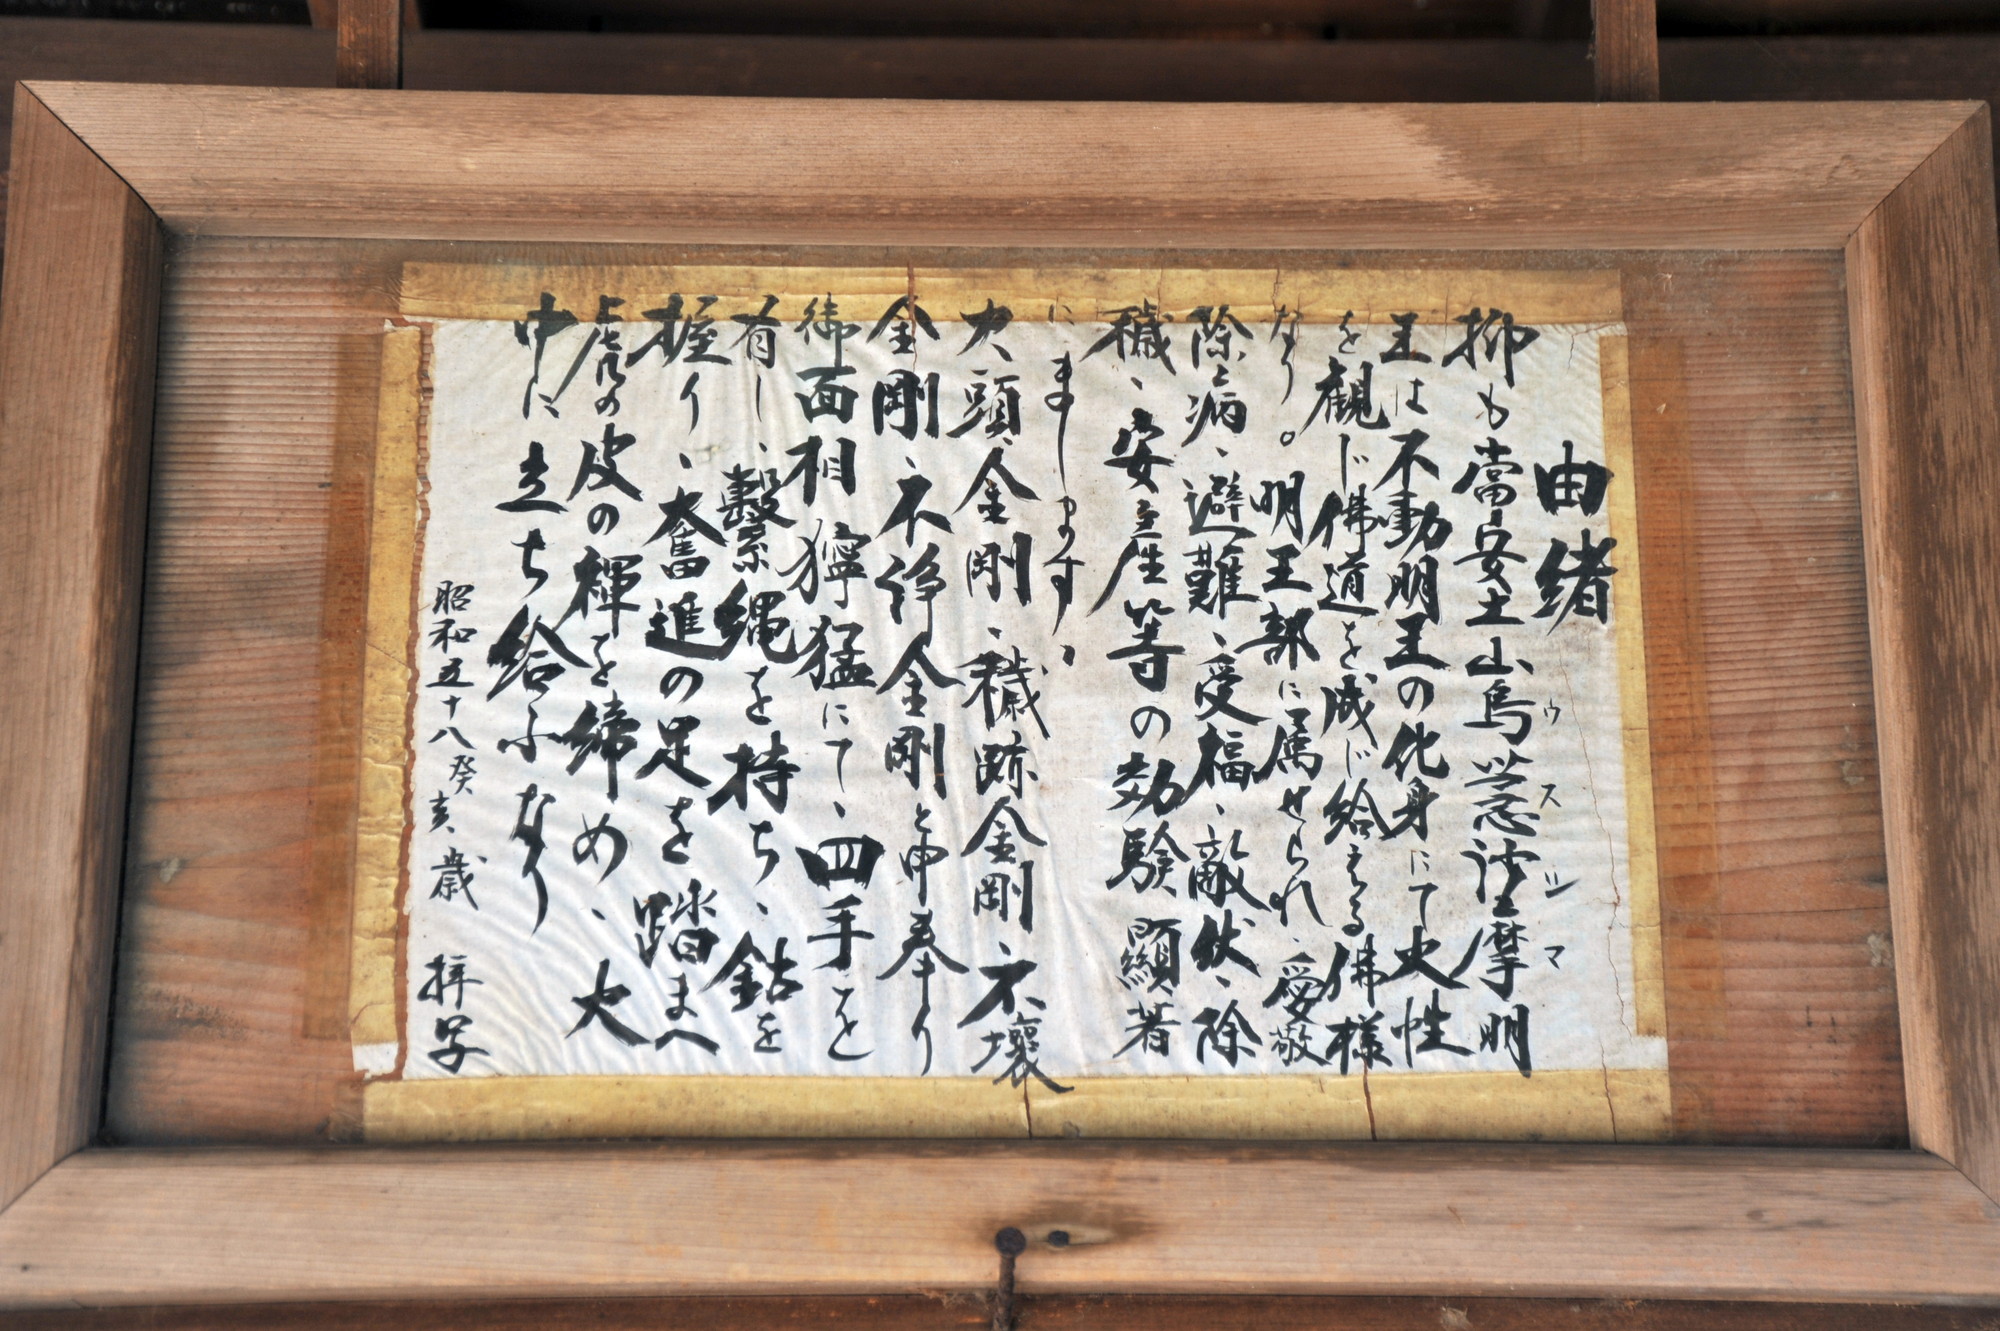 由緒
抑も當安土山烏蒭渋摩明
ウスシマ
王は不動明王の化身にて火性
を観じ佛道を成じ給える佛様
なり。明王部に属せられ、愛敬
除病、避難、受福、敵伏、除
穢、安産等の効験顕著
にましまます、
火頭金剛、穢跡金剛、不壊
金剛、不浄金剛と申奉り
御面相獰猛にて、四手を
有し、繋縄を持ち、鈷を
握り、奮進の足を踏まへ
虎の皮の褌を締め、火
中に立ち給ふなり
昭和五十八癸亥歳 拝写